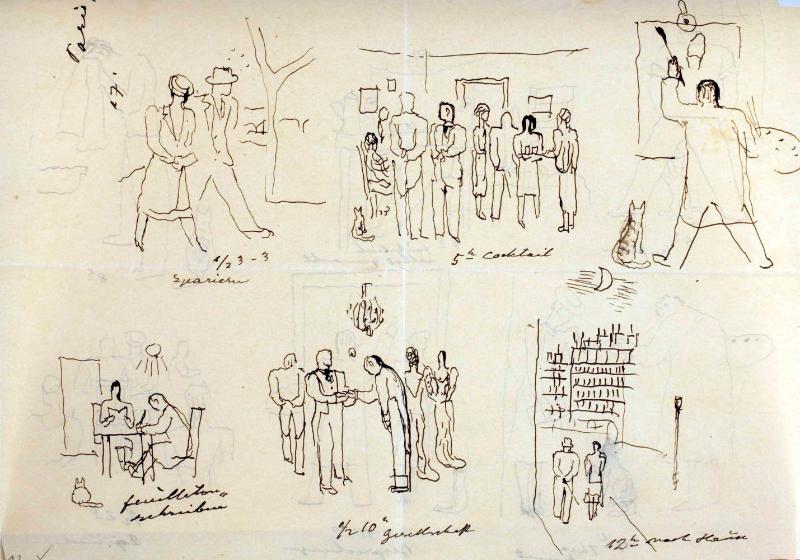 Paris,
1/2 3-3
spazieren
5h Cocktail
feuilleton-
schreiben
1/2 10h Gesellschaft
12h nach Hause